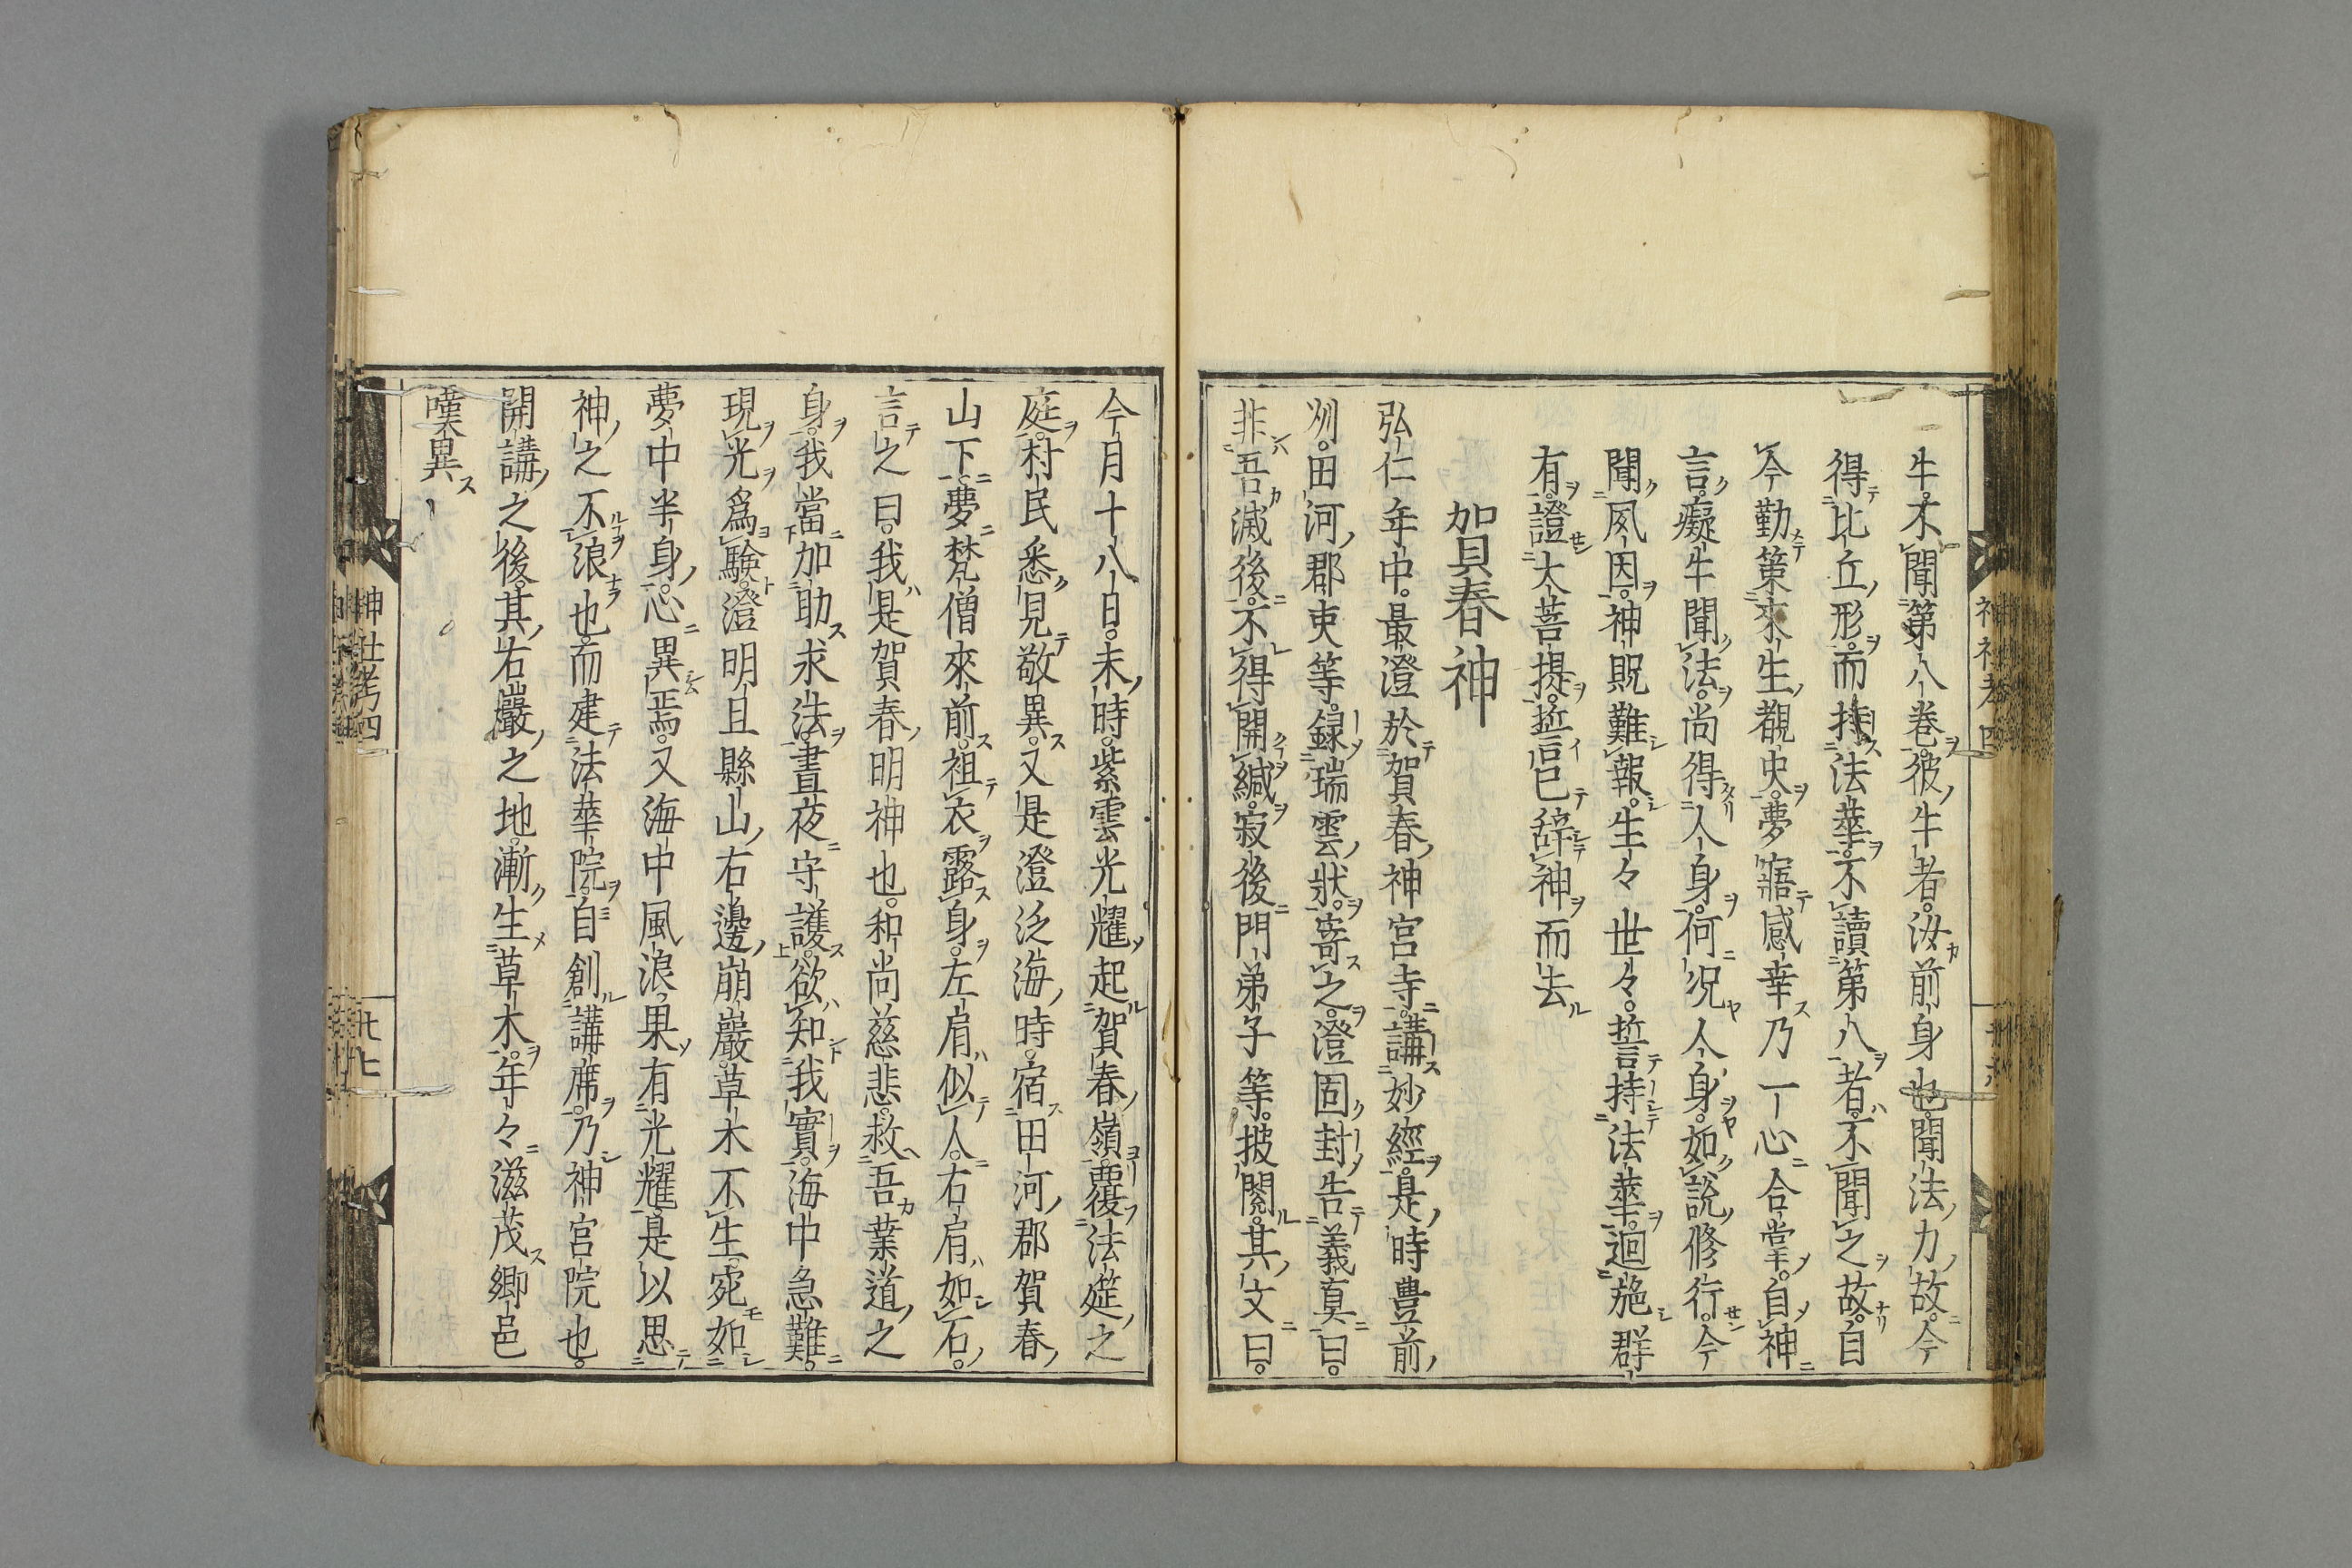 牛。不聞第八巻。彼牛者。汝前身也。聞法力故。今
得比丘形。而持法華。不讀第八者。不聞之故。自
今勤策來生覩史。夢寤感幸乃一心合掌。自神
言。癡牛聞法。尚得人身。何况人身。如說修行。今
聞夙因。神貺難報。生々世々。誓持法華。迴施群
有。證大菩提。誓已辞神而去
賀春神
弘仁年中。最澄於賀春神宮寺。講妙經。是時豊前
州。田河郡吏等。録瑞雲狀。寄之。澄固封告義真曰。
非吾滅後。不得開緘。寂後門弟子等。披閱。其文曰。
今月十八日。未時。紫雲光耀起賀春嶺。覆法筵之
庭。村民悉見敬異。又是澄泛海時。宿田河郡賀春
山下。夢梵僧來前。袒衣露身。左肩似人。右肩如石。
言之曰。我是賀春明神也。和尚慈悲。救吾業道之
身。我當加助求法。晝夜守護。欲知我實。海中急難。
現光為驗。澄明旦縣山右邊崩巖。草木不生。宛如
夢中半身。心異焉。又海中風浪果有光耀。是以思
神之不浪也。而建法華院。自創講席。乃神宮院也。
開講之後。其右巖之地。漸生草木。年々滋茂鄉邑
嘆異
神社考四
神社考四
廿七